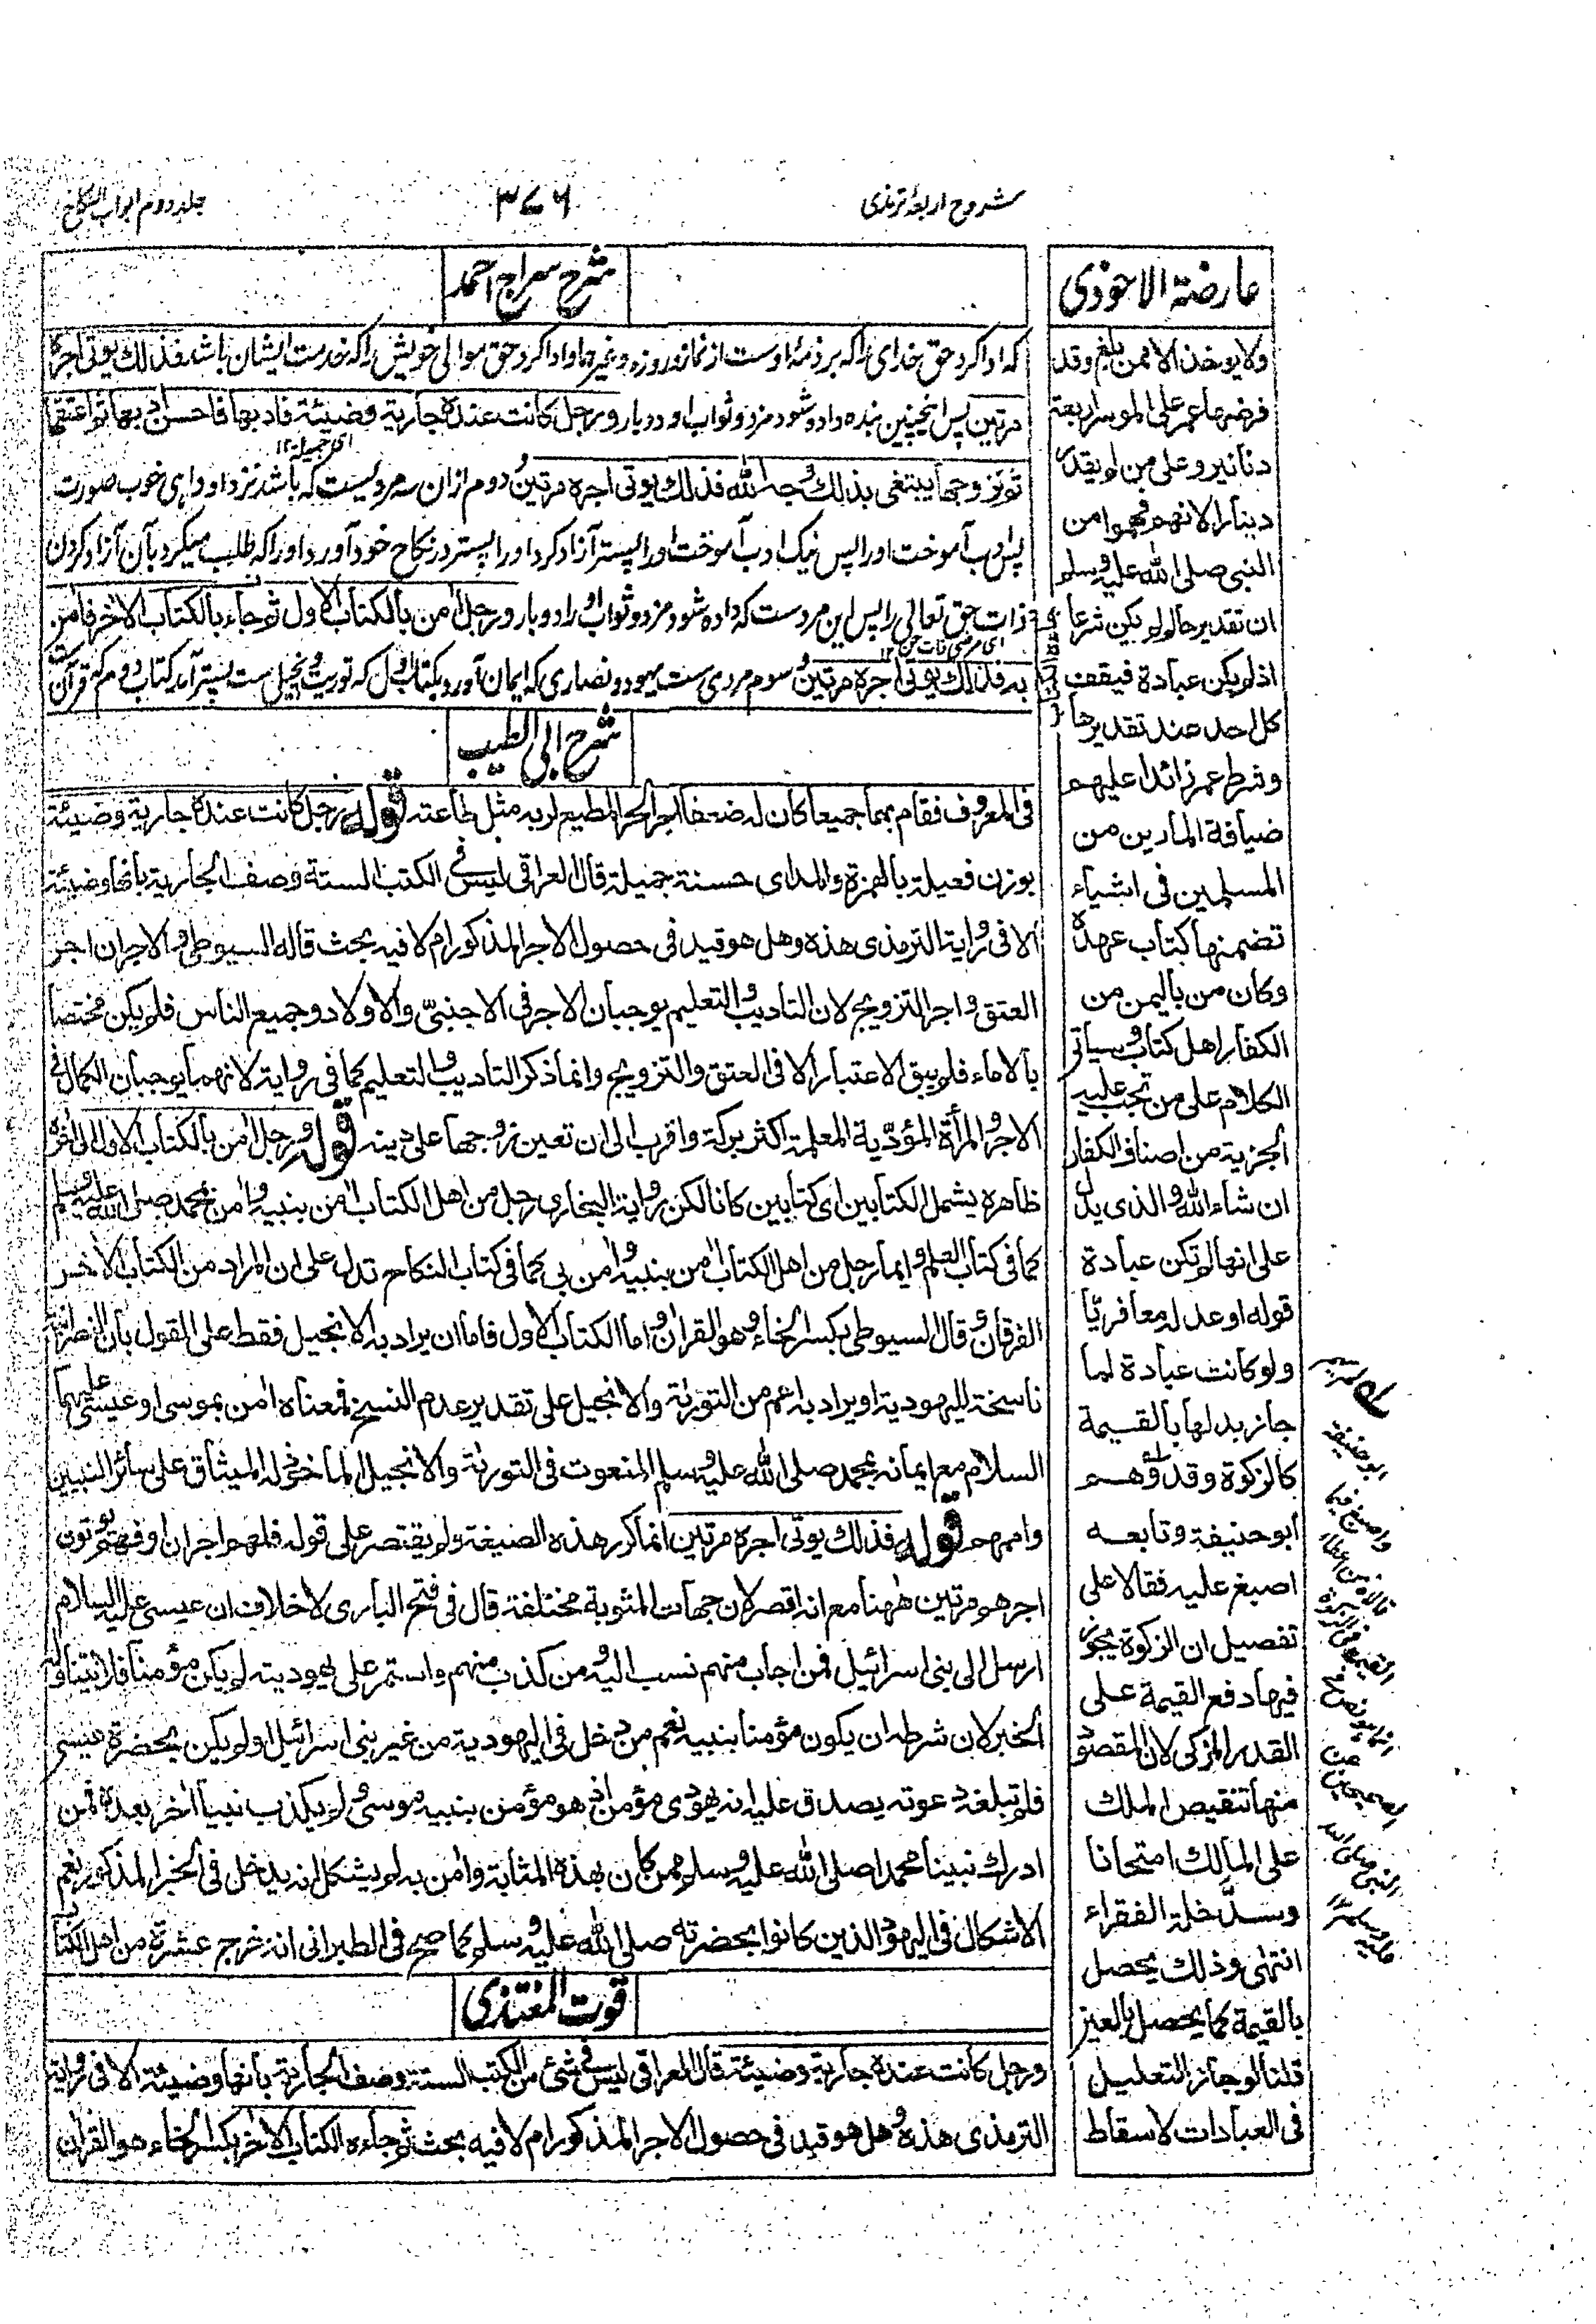 شروح اربعۂ ترمذی
٣٧٦
جلد دوم ابواب النکاح
عارضۃ الاحوذی
ولا یوخذ الا ممن بلغ وقد
فرضها عمر علی الموسر اربعۃ
دنانیر و علی من لم یقدر
دینارا لانهم فهموا من
النبی صلی اللہ علیہ وسلم
ان تقدیرها لم یکن شرعا
اذ لم یکن عبادۃ فیقف
کل احد عند تقدیرها
وشرط عمر زائدا علیهم
ضیافۃ المارین من
المسلمین فی اشیاء
تضمنها کتاب عهدہ
وکان من بالیمن من
الکفار اهل کتاب وسیأتی
الکلام علی من تجب علیہ
الجزیۃ من اصناف الکفار
ان شاء اللہ والذی یدل
علی انها لم تکن عبادۃ
قولہ او عدلہ معافریّا
ولو کانت عبادۃ لما
جاز بدلها بالقیمۃ
کالزکوۃ وقد وهم
ابو حنیفۃ وتابعہ
اصبغ علیہ فقالا علی
تفصیل ان الزکوۃ یجوز
فیها دفع القیمۃ علی
القدر المزکی لان المقصود
منها تنقیص الملک
علی المالک امتحانا
وسدّ خلۃ الفقراء
انتهی وذلک یحصل
بالقیمۃ کما یحصل بالعین
قلنا لو جاز التعلیل
فی العبادات لاسقاط
شرح سراج احمد
کہ ادا کرد حق خدای را کہ بر ذمۂ اوست از نماز و روزہ و غیرهما و ادا کرد حق موالی خویش را کہ خدمت ایشان باشد فذلک یوتی اجرہ
مرتین پس اینچنین بندہ دادہ شود مزد و ثواب او دوبار و رجل کانت عندہ جاریۃ وضیئۃ فادبها فاحسن ادبها ثم اعتقها
ای جمیلۃ ١٢
ثم تزوجها یبتغی بذلک وجہ اللہ فذلک یوتی اجرہ مرتین دوم ازان سہ مردیست کہ باشد نزد او داهی خوب صورت
پس ادب آموخت اورا پس نیک ادب آموخت اورا پستر آزاد کرد اورا پستر در نکاح خود آورد اورا کہ طلب میکرد بآن آزاد کردن
ذات حق تعالی را پس این مردست کہ دادہ شود مزد و ثواب او را دوبار و رجل آمن بالکتاب الاول ثم جاء بالکتاب الآخر فآمن
ای مرضی ذات حق ١٢
بہ فذلک یوتی اجرہ مرتین و سوم مردی ست یهود و نصاری کہ ایمان آورد بکتاب اول کہ توریت و انجیل ست پستر آمد کتاب دوم کہ قرآن
شرح ابی الطیب
فی المعروف فقام بهما جمیعا کان لہ ضعفا اجر الحر المطیع لربہ مثل طاعتہ قولہ ورجل کانت عندہ جاریۃ وضیئۃ
بوزن فعیلۃ بالهمزۃ والمد ای حسنۃ جمیلۃ قال العراقی لیس فی الکتب الستۃ وصف الجاریۃ بانها وضیئۃ
الا فی روایۃ الترمذی هذہ وهل هو قید فی حصول الاجر المذکور ام لا فیہ بحث قالہ السیوطی والاجران اجر
العتق واجر التزویج لان التادیب والتعلیم یوجبان الاجر فی الاجنبیّ والاولاد وجمیع الناس فلم یکن مختصا
بالاماء فلم یبق الاعتبار الا فی العتق والتزویج وانما ذکر التادیب والتعلیم کما فی روایۃ لانهما یوجبان الکمال فی
الاجر والمرأۃ المؤدبۃ المعلمۃ اکثر برکۃ واقرب الی ان تعین زوجها علی دینہ قولہ ورجل آمن بالکتاب الاول الی آخرہ
ظاهرہ یشمل الکتابین ای کتابین کانا لکن روایۃ البخاری رجل من اهل الکتاب آمن بنبیہ وآمن بمحمد صلی اللہ علیہ وسلم
کما فی کتاب العلم و ایما رجل من اهل الکتاب آمن بنبیہ وآمن بی کما فی کتاب النکاح تدل علی ان المراد من الکتاب الآخر
الفرقان وقال السیوطی بکسر الخاء وهو القرآن واما الکتاب الاول فاما ان یراد بہ الانجیل فقط علی القول بان النصرانیۃ
ناسخۃ للیهودیۃ او یراد بہ اعم من التورٰىۃ والانجیل علی تقدیر عدم النسخ فمعناہ آمن بموسی او عیسی علیهما
السلام مع ایمانہ بمحمد صلی اللہ علیہ وسلم المنعوت فی التورٰىۃ والانجیل الماخوذ لہ المیثاق علی سائر النبیین
واممهم قولہ فذلک یوتی اجرہ مرتین انما کرر هذہ الصیغۃ ولم یقتصر علی قولہ فلهم اجران او فهم یوتون
اجرهم مرتین ههنا مع انہ اقصر لان جهات المثوبۃ مختلفۃ قال فی فتح الباری لا خلاف ان عیسی علیہ السلام
ارسل الی بنی اسرائیل فمن اجاب منهم نسب الیہ ومن کذب منهم واستمر علی یهودیتہ لم یکن مؤمنا فلا یتناولہ
الخبر لان شرطہ ان یکون مؤمنا بنبیہ نعم من دخل فی الیهودیۃ من غیر بنی اسرائیل او لم یکن بحضرۃ عیسی
فلم تبلغہ دعوتہ یصدق علیہ انہ یهودی مؤمن اذ هو مؤمن بنبیہ موسی ولم یکذب نبیا آخر بعدہ فمن
ادرک نبینا محمدا صلی اللہ علیہ وسلم ممن کان بهذہ المثابۃ وآمن بہ لم یشکل انہ یدخل فی الخبر المذکور نعم
الاشکال فی الیهود الذین کانوا بحضرتہ صلی اللہ علیہ وسلم کما صح فی الطبرانی انہ خرج عشرۃ من اهل الکتاب
قوت المغتذی
ورجل کانت عندہ جاریۃ وضیئۃ قال العراقی لیس فی شئ من الکتب الستۃ وصف الجاریۃ بانها وضیئۃ الا فی روایۃ
الترمذی هذہ وهل هو قید فی حصول الاجر المذکور ام لا فیہ بحث ثم جاءہ الکتاب الآخر بکسر الخاء هو القرآن